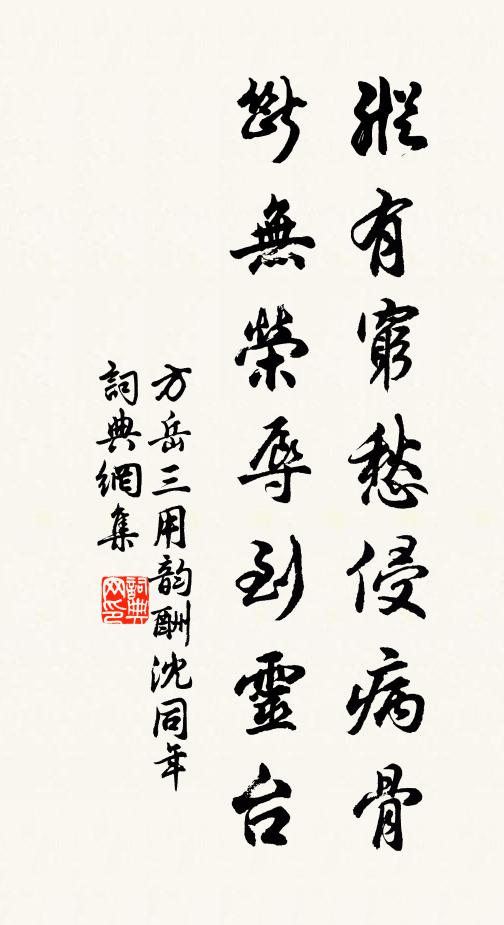 縱有窮愁侵病骨
斷無榮辱到靈台
方岳三用韵酬沈同年
詞典網集
詞典網印